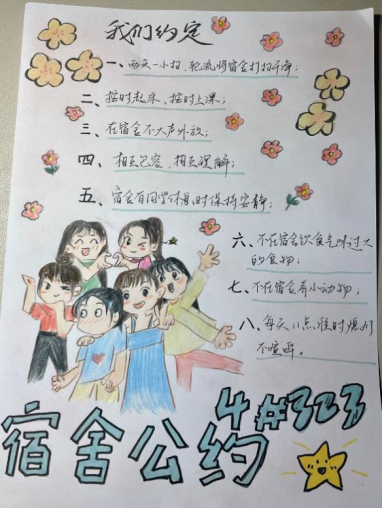 我们约定
一、两天一小扫,轮流将宿舍打扫干净;
二、按时起床,按时上课;
三、在宿舍不大声外放;
四、相互包容,相互理解;
五、宿舍有同学休息时保持安静;
六、不在宿舍饮食气味过大
的食物;
七、不在宿舍养小动物;
八、每天11点准时熄灯
不喧哗。
4#323
宿舍公约